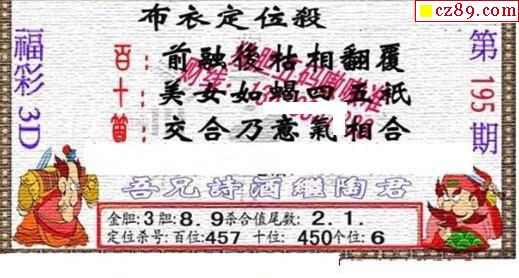 cz89.com
布衣定位殺
福彩3D
第195期
百: 前融後枯相翻覆
十: 美女如蝎四五祇
箇: 交合乃意氣相合
吾兄詩酒繼陶君
金胆:3胆:8.9杀合值尾数:2.1.
定位杀号:百位:457 十位:450个位:6